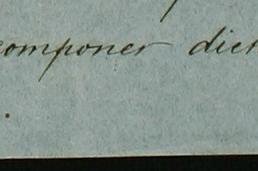 componer dier